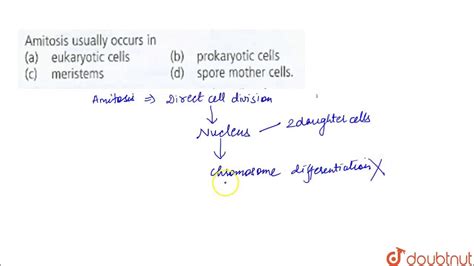 Amitosis usually occurs in
(a) eukaryotic cells (b) prokaryotic cells
(c) meristems (d) spore mother cells.
Amitosis ⇒ Direct cell division
Nucleus — 2 daughter cells
Chromosome differentiation X
doubtnut